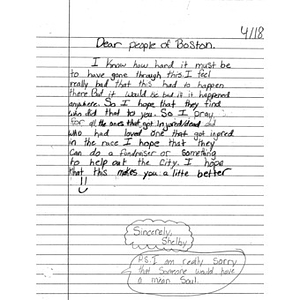 4/18
Dear people of Boston.
I know how hard it must be
to have gone through this. I feel
really bad that this had to happen
there But it would be bad if it happened
anywhere. So I hope that they find
who did that to you. So I pray
for all the ones that got injored/dead and
who had loved one that got injored
in the race I hope that They
Can do a fundraiser or Something
to help out the City. I hope
that this makes you a litte better
Sincerely,
Shelby
P.S. I am really Sorry
that Someone would have
a mean Soul.